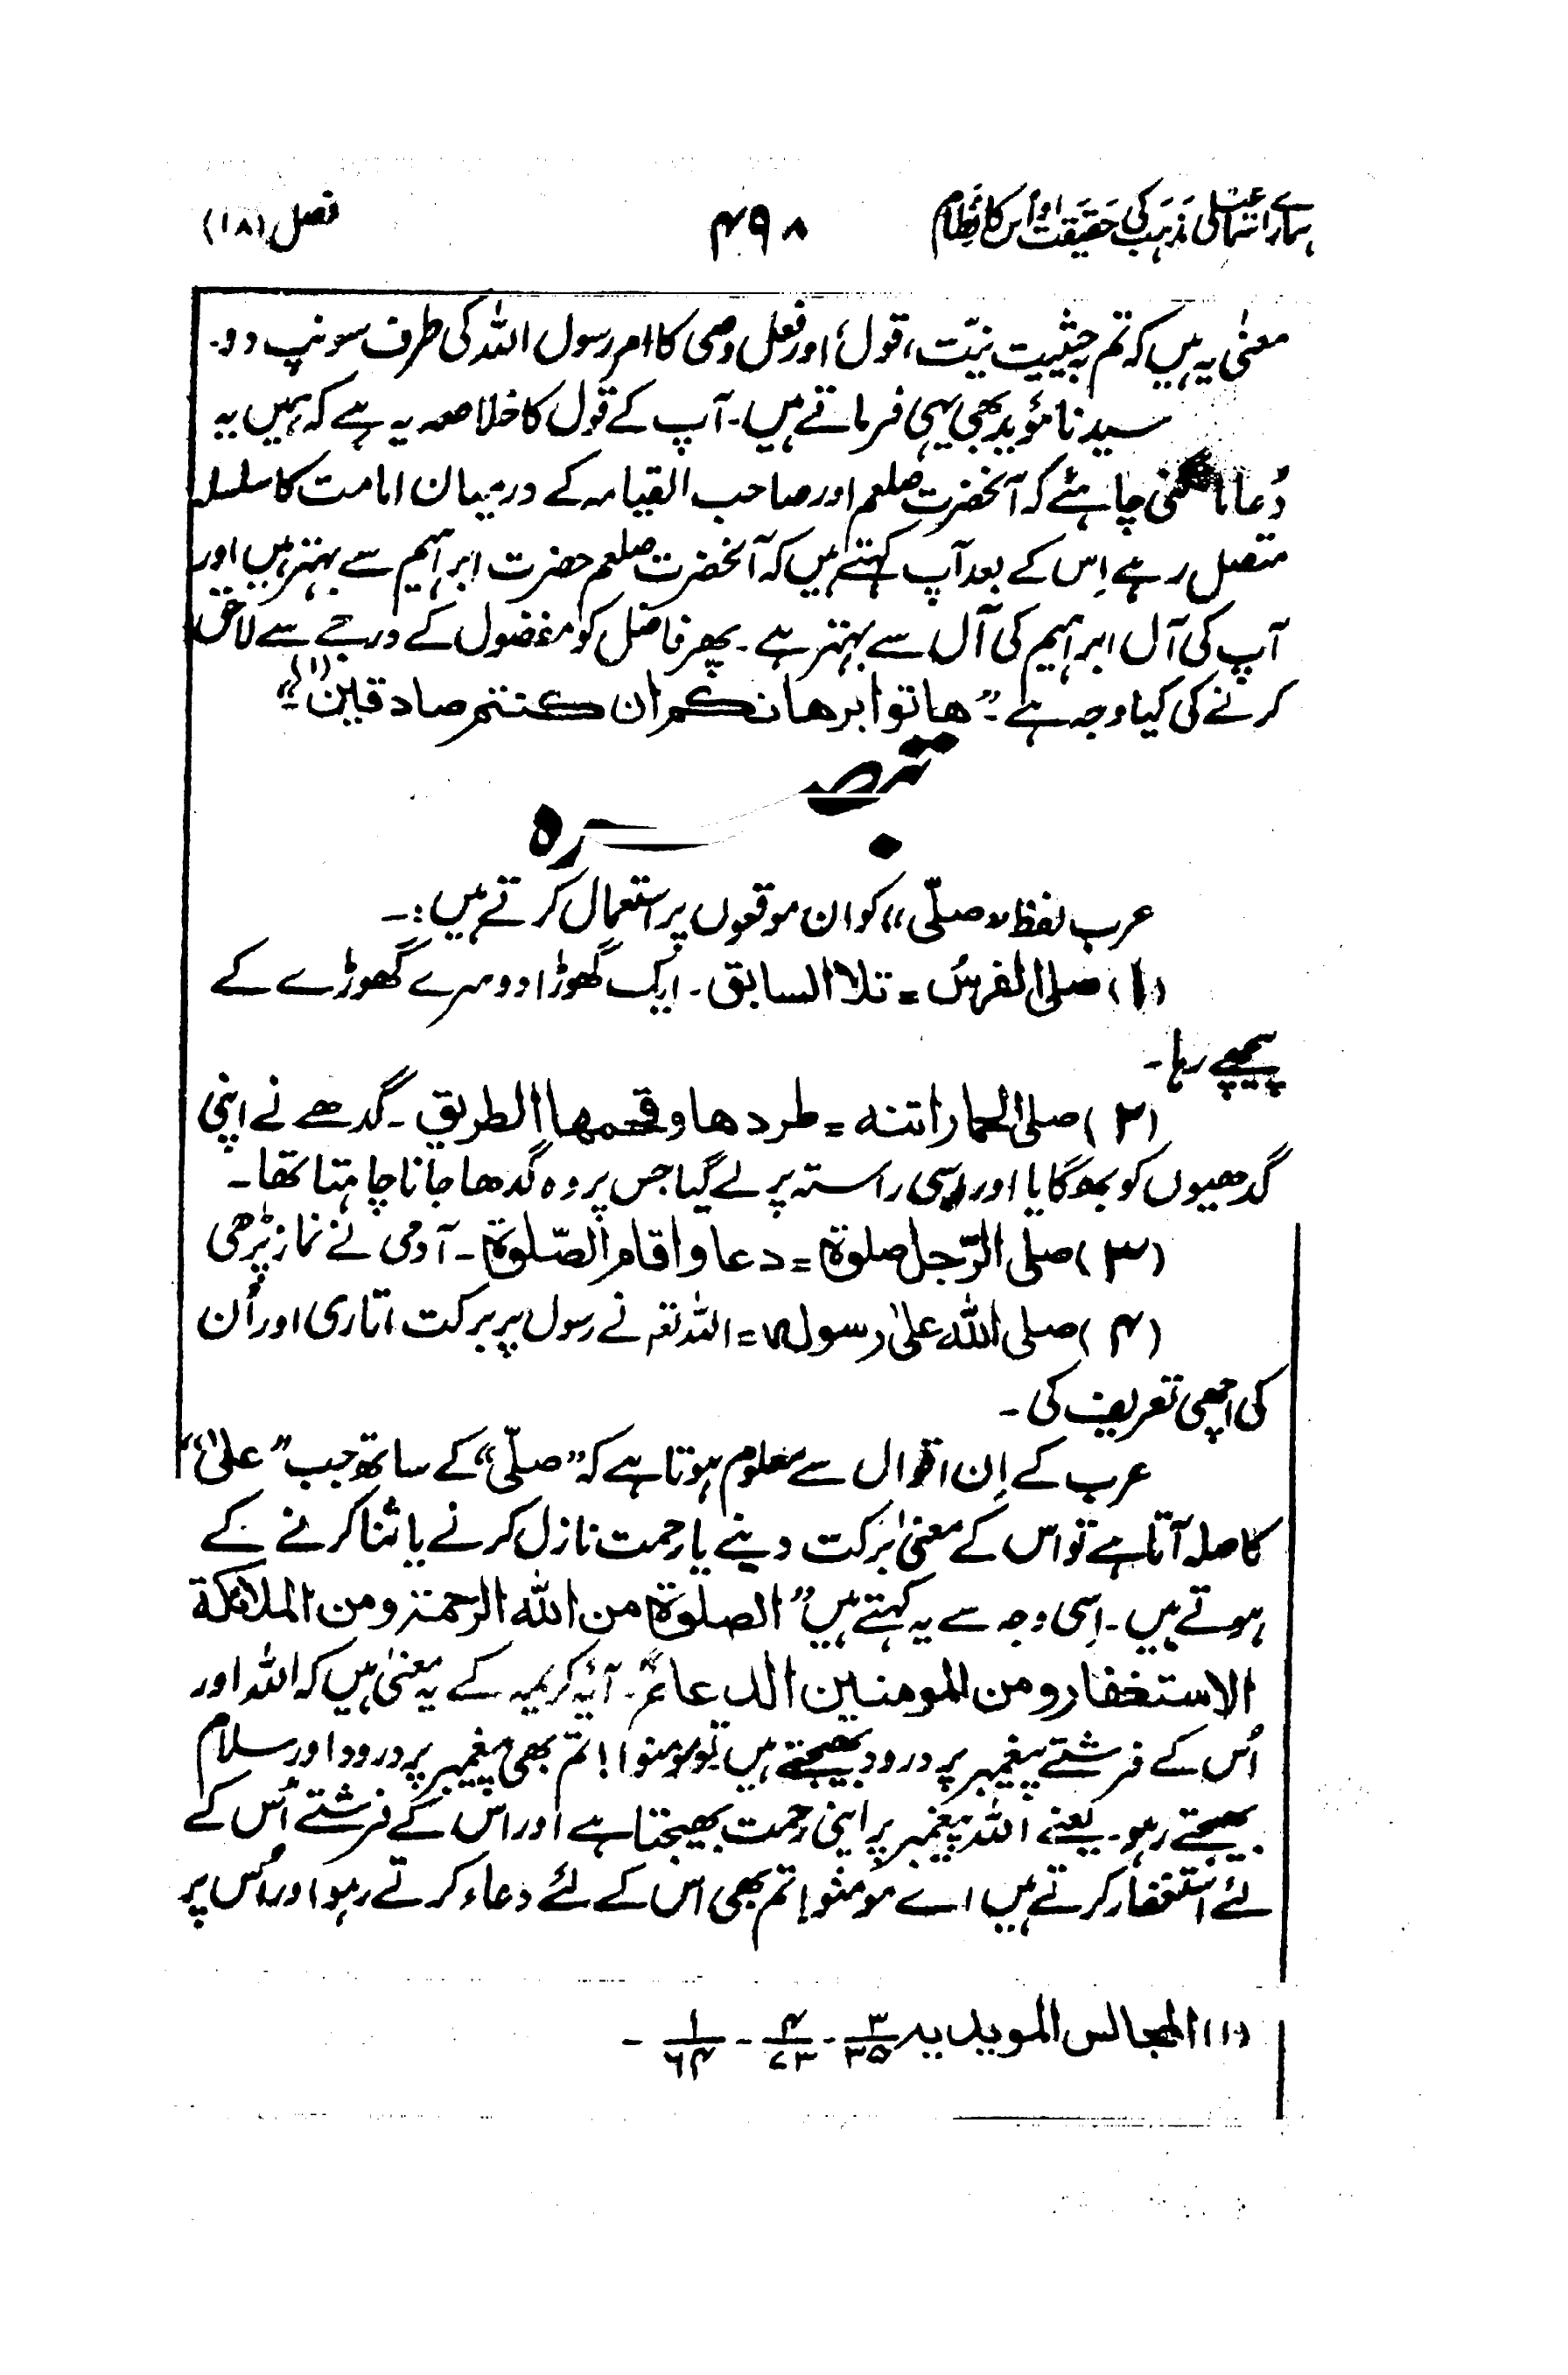 ہمارے اسماعیلی مذہب کی حقیقت اور اس کا نظام ۴۹۸ فصل (۱۸)
معنیٰ یہ ہیں کہ تم بحیثیت نیّت، قول اور فعل وصی کا امر رسول اللہ کی طرف سونپ دو۔
سیدنا مؤید بھی یہی فرماتے ہیں۔ آپ کے قول کا خلاصہ یہ ہے کہ ہمیں یہ
دُعا مانگنی چاہئے کہ آنحضرت صلعم اور صاحب القیامہ کے درمیان امامت کا سلسلہ
متصل رہے اِس کے بعد آپ کہتے ہیں کہ آنحضرت صلعم حضرت ابراہیم سے بہتر ہیں اور
آپ کی آل ابراہیم کی آل سے بہتر ہے۔ پھر فاضل کو مفضول کے درجے سے لاحق
کرنے کی کیا وجہ ہے۔ "ھاتوا برھانکم ان کنتم صادقین"(۱)
تبصرہ
عرب لفظ "صلّی" کو ان موقعوں پر استعمال کرتے ہیں:۔
(۱) صلی الفرسُ = تلا السابق۔ ایک گھوڑا دوسرے گھوڑے کے
پیچھے رہا۔
(۲) صلی الحمار اتنه = طردھا وقحمھا الطریق۔ گدھے نے اپنی
گدھیوں کو بھگایا اور اسی راستہ پر لے گیا جس پر وہ گدھا جانا چاہتا تھا۔
(۳) صلی الرّجل صلوة = دعا واقام الصّلوة۔ آدمی نے نماز پڑھی
(۴) صلی اللہ علیٰ رسوله = اللہ تعہ نے رسول پر برکت اتاری اور اُن
کی اچھی تعریف کی۔
عرب کے اِن اقوال سے معلوم ہوتا ہے کہ "صلّی" کے ساتھ جب "علیٰ"
کا صلہ آتا ہے تو اس کے معنیٰ برکت دینے یا رحمت نازل کرنے یا ثنا کرنے کے
ہوتے ہیں۔ اِسی وجہ سے یہ کہتے ہیں "الصلوة من اللہ الرحمة ومن الملائکة
الاستغفار ومن المومنین الدعاء"۔ آیۂ کریمہ کے یہ معنیٰ ہیں کہ اللہ اور
اُس کے فرشتے پیغمبر پر درود بھیجتے ہیں تو مومنوا! تم بھی پیغمبر پر درود اور سلام
بھیجتے رہو۔ یعنے اللہ پیغمبر پر اپنی رحمت بھیجتا ہے اور اس کے فرشتے اُس کے
لئے استغفار کرتے ہیں اے مومنو! تم بھی اس کے لئے دعاء کرتے رہو اور اُس پر
(۱) المجالس المویدیہ ۳/۳۵ - ۴/۷۳ - ۱/۶۴ -